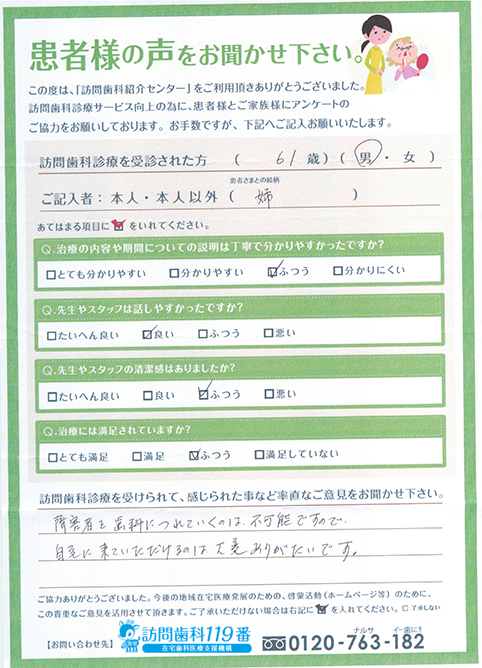 患者様の声をお聞かせ下さい。
この度は、「訪問歯科紹介センター」をご利用頂きありがとうございました。
訪問歯科診療サービス向上の為に、患者様とご家族様にアンケートの
ご協力をお願いしております。お手数ですが、下記へご記入お願いいたします。
訪問歯科診療を受診された方 ( 61 歳) ( 男 ・ 女 )
患者さまとの続柄
ご記入者：本人・本人以外 ( 姉 )
あてはまる項目に☑をいれてください。
Q.治療の内容や期間についての説明は丁寧で分かりやすかったですか?
□とても分かりやすい □分かりやすい ☑ふつう □分かりにくい
Q.先生やスタッフは話しやすかったですか?
□たいへん良い ☑良い □ふつう □悪い
Q.先生やスタッフの清潔感はありましたか?
□たいへん良い □良い ☑ふつう □悪い
Q.治療には満足されていますか?
□とても満足 □満足 ☑ふつう □満足していない
訪問歯科診療を受けられて、感じられた事など率直なご意見をお聞かせ下さい。
障害者を歯科につれていくのは、不可能ですので、
自宅に来ていただけるのは大変ありがたいです。
ご協力ありがとうございました。今後の地域在宅医療発展のための、啓蒙活動(ホームページ等)のために、
この貴重なご意見を活用させて頂きます。ご了承いただけない場合は右記に☑を入れてください。□了承しない
【お問い合わせ先】 訪問歯科119番
在宅歯科医療支援機構
ナルサ イー歯に!!
0120-763-182